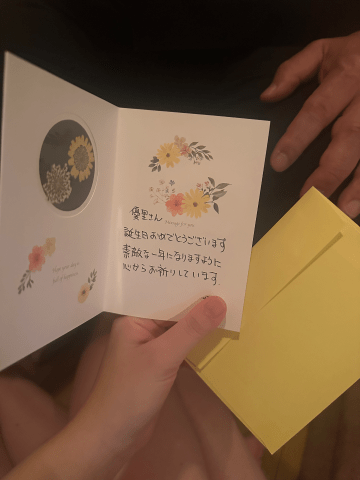 優里さん
誕生日おめでとうございます
素敵な一年になりますように
心からお祈りしています。